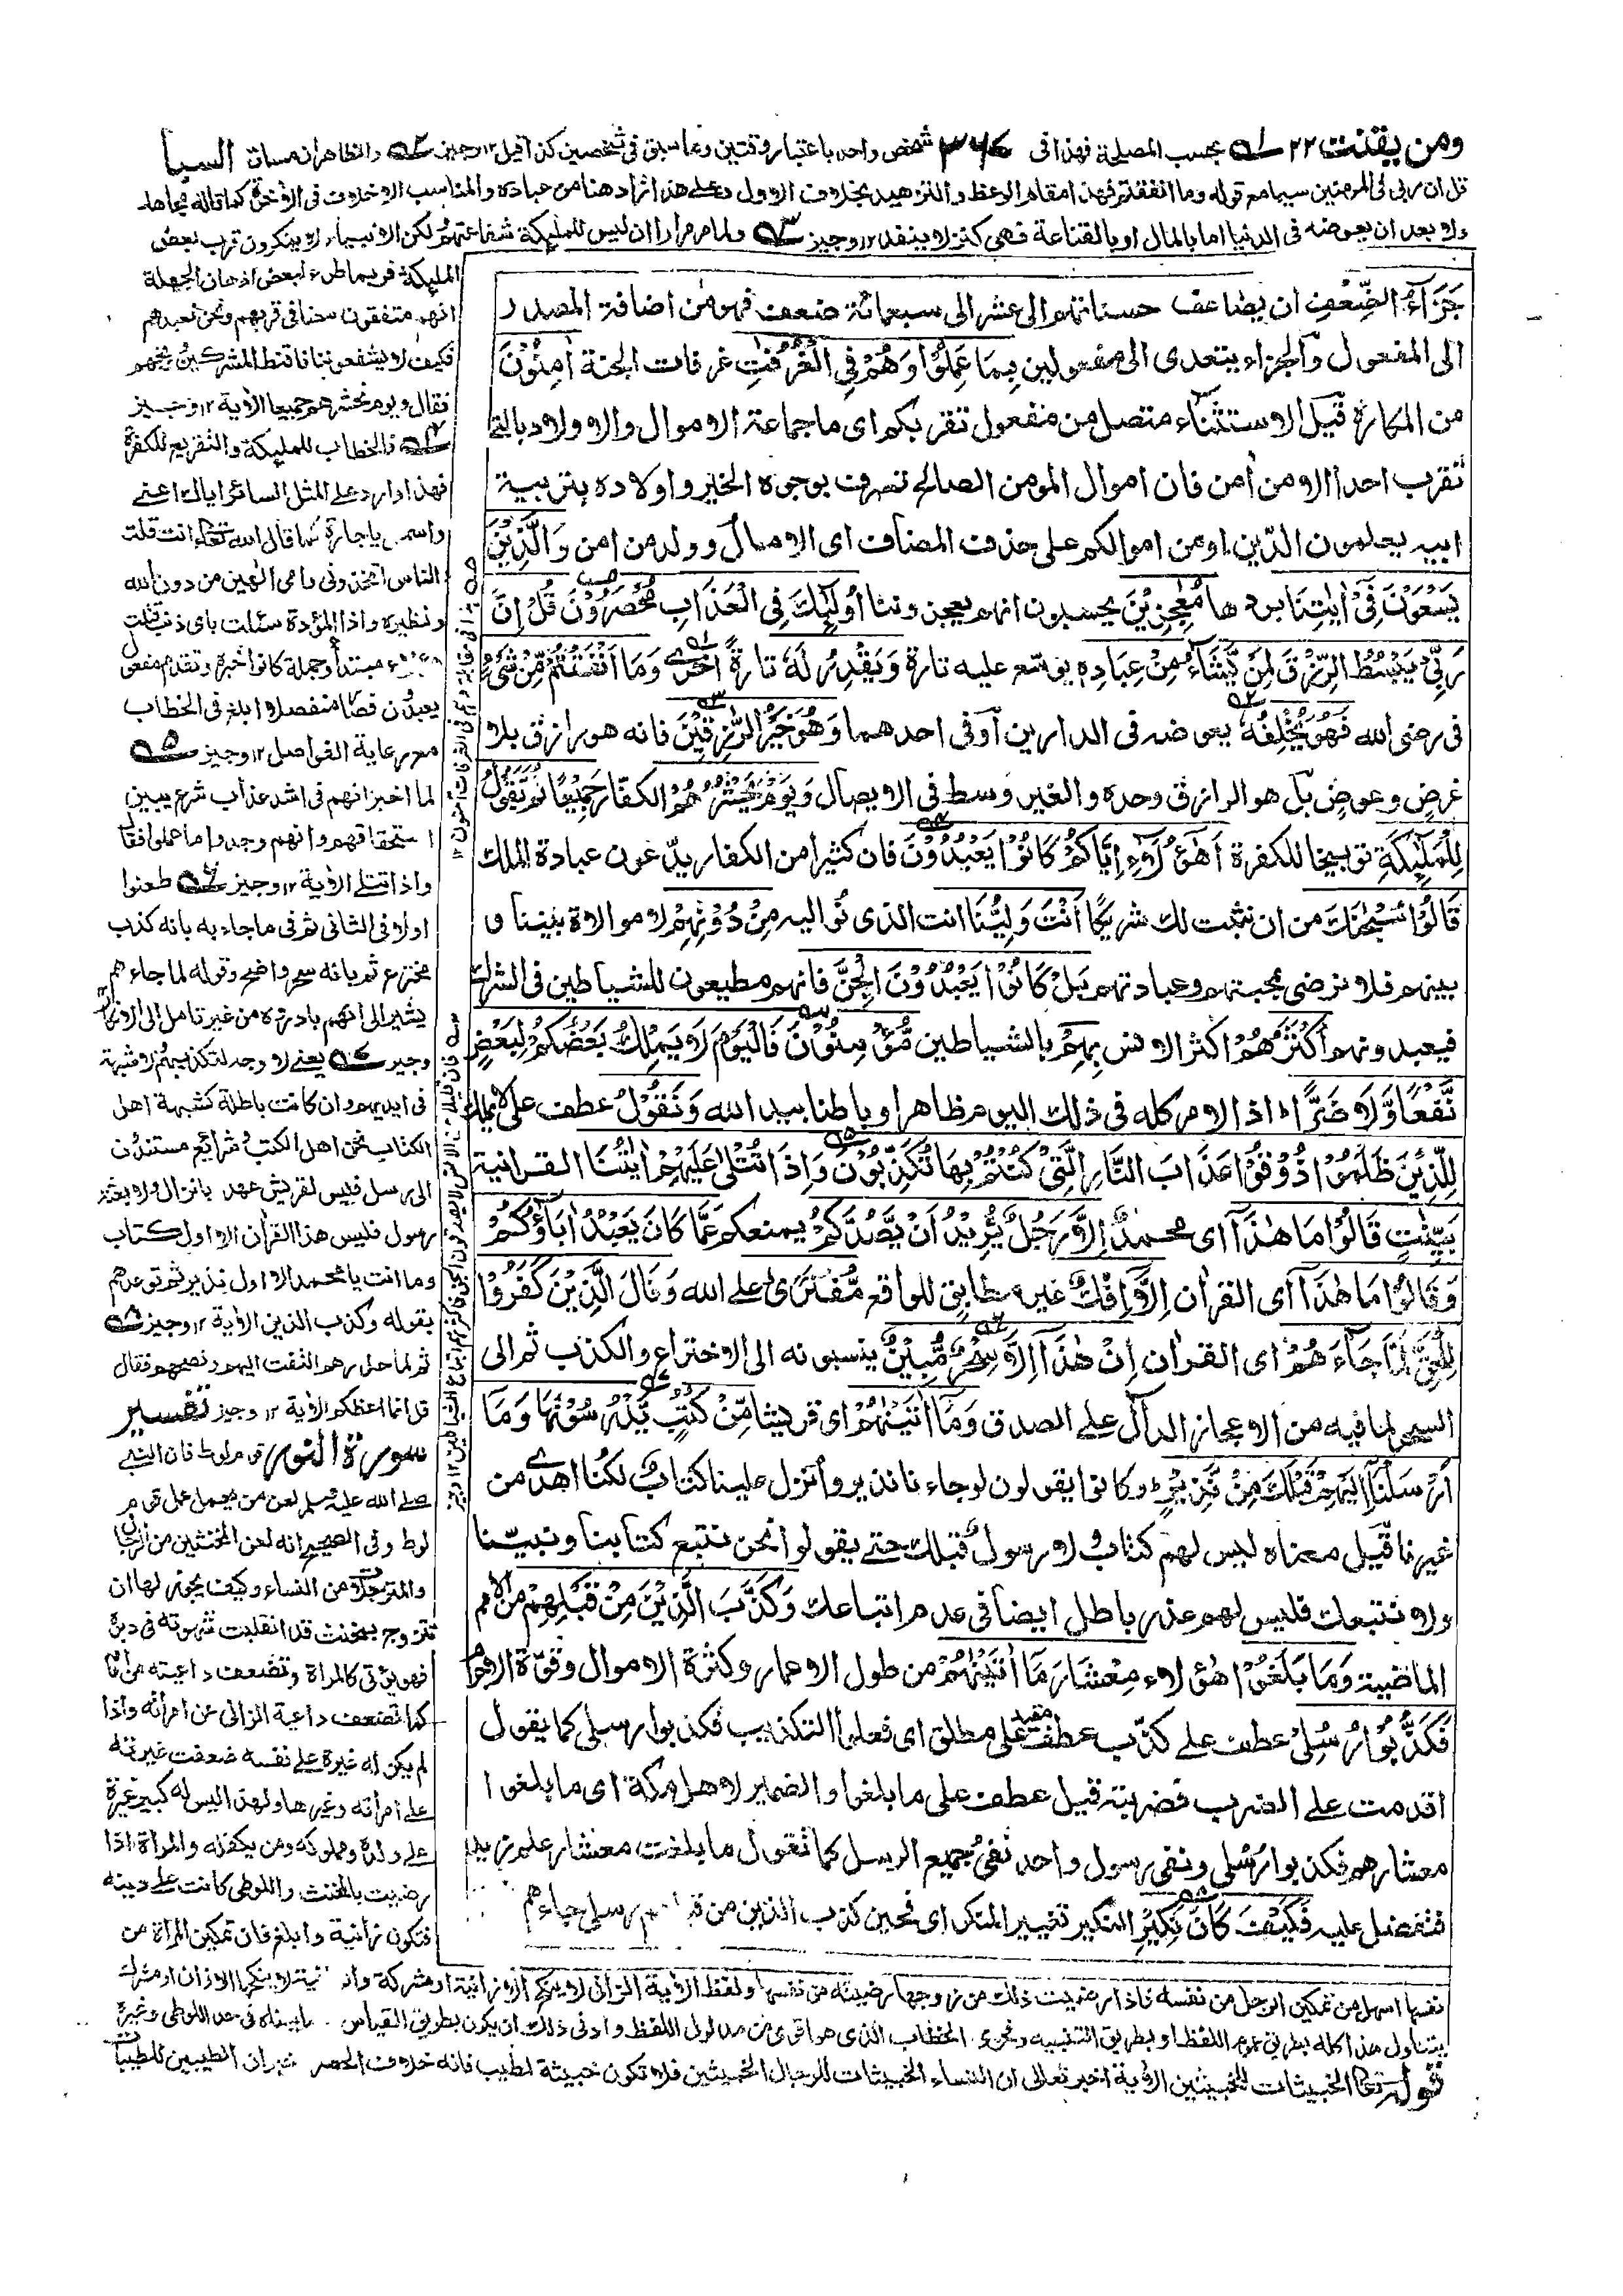 ومن يقنت ٢٢
٣٧٤
السبا
بحسب المصلحة فهذا فى شخص واحد باعتبار وقتين وما سبق فى شخصين كذا قيل ١٢ وجيز والظاهر ان مساق
قل ان ربى فى المؤمنين سيما مع قوله وما انفقتم فهذا مقام الوعظ والتزهيد بخلاف الاول وعلى هذا نزاد هنا من عباده والمناسب الاختلاف فى الآخرة كما قاله مجاهد
ولا بعد ان يعوضه فى الدنيا اما بالمال او بالقناعة فهى كنز لا ينفد ١٢ وجيز ولما مر مرارا ان ليس للمليكة شفاعتهم لكن الانبياء لا ينكرون قرب بعض
جَزَآءُ الضِّعْفِ ان يضاعف حسناتهم الى عشر الى سبعمائة ضعف فهو من اضافة المصدر
الى المفعول والجزاء يتعدى الى مفعولين بِمَا عَمِلُوْا وَهُمْ فِى الْغُرُفٰتِ غرفات الجنة اٰمِنُوْنَ
من المكاره قيل الاستثناء متصل من مفعول تقربكم اى ما جماعة الاموال والاولاد بالتى
تقرب احدا الا من اٰمن فان اموال المومن الصالح تصرف بوجوه الخير واولاده بتربية
ابيه يعلمون الدّين او من اموالكم على حذف المضاف اى الا مال وولد من امن وَالَّذِيْنَ
يَسْعَوْنَ فِىْٓ اٰيٰتِنَا بردها مُعٰجِزِيْنَ يحسبون انهم يعجزوننا اُولٰٓئِكَ فِى الْعَذَابِ مُحْضَرُوْنَ قُلْ اِنَّ
رَبِّىْ يَبْسُطُ الرِّزْقَ لِمَنْ يَّشَآءُ مِنْ عِبَادِهٖ يوسّع عليه تارة وَيَقْدِرُ لَهٗ تارةً اخرى وَمَآ اَنْفَقْتُمْ مِّنْ شَىْءٍ
فى رضى الله فَهُوَ يُخْلِفُهٗ يعوضه فى الدارين او فى احدهما وَهُوَ خَيْرُ الرّٰزِقِيْنَ فانه هو رازق بلا
غرض وعوض بل هو الرازق وحده والغير وسط فى الايصال وَيَوْمَ يَحْشُرُهُمْ الكفار جَمِيْعًا ثُمَّ يَقُوْلُ
لِلْمَلٰٓئِكَةِ توبيخا للكفرة اَهٰٓؤُلَآءِ اِيَّاكُمْ كَانُوْا يَعْبُدُوْنَ فان كثيرا من الكفار يدّعون عبادة الملك
قَالُوْا سُبْحٰنَكَ من ان نثبت لك شريكا اَنْتَ وَلِيُّنَا انت الذى نواليه مِنْ دُوْنِهِمْ لا موالاة بيننا و
بينهم فلا نرضى بمحبتهم وعبادتهم بَلْ كَانُوْا يَعْبُدُوْنَ الْجِنَّ فانهم مطيعون للشياطين فى الشرك
فيعبدونهم اَكْثَرُهُمْ اكثر الانس بِهِمْ بالشياطين مُّؤْمِنُوْنَ فَالْيَوْمَ لَا يَمْلِكُ بَعْضُكُمْ لِبَعْضٍ
نَّفْعًا وَّلَا ضَرًّا اذ الامر كله فى ذلك اليوم ظاهرا وباطنا بيد الله وَنَقُوْلُ عطف على لايملك
لِلَّذِيْنَ ظَلَمُوْا ذُوْقُوْا عَذَابَ النَّارِ الَّتِىْ كُنْتُمْ بِهَا تُكَذِّبُوْنَ وَاِذَا تُتْلٰى عَلَيْهِمْ اٰيٰتُنَا القرانية
بَيِّنٰتٍ قَالُوْا مَا هٰذَآ اى محمدٌ اِلَّا رَجُلٌ يُّرِيْدُ اَنْ يَّصُدَّكُمْ يمنعكم عَمَّا كَانَ يَعْبُدُ اٰبَآؤُكُمْ
وَقَالُوْا مَا هٰذَآ اى القران اِلَّآ اِفْكٌ غير مطابق للواقع مُّفْتَرًى على الله وَقَالَ الَّذِيْنَ كَفَرُوْا
لِلْحَقِّ لَمَّا جَآءَهُمْ اى القران اِنْ هٰذَآ اِلَّا سِحْرٌ مُّبِيْنٌ ينسبونه الى الاختراع والكذب ثم الى
السحر لما فيه من الاعجاز الدال على الصدق وَمَآ اٰتَيْنٰهُمْ اى قريشا مِّنْ كُتُبٍ يَّدْرُسُوْنَهَا وَمَآ
اَرْسَلْنَآ اِلَيْهِمْ قَبْلَكَ مِنْ نَّذِيْرٍ وكانوا يقولون لو جاءنا نذير وأنزل علينا كتابٌ لكنا اهدى من
غيرنا قيل معناه ليس لهم كتاب ولا رسول قبلك حتى يقولوا نحن نتبع كتابنا ونبيّنا
ولا نتبعك فليس لهم عذر باطل ايضا فى عدم اتباعك وَكَذَّبَ الَّذِيْنَ مِنْ قَبْلِهِمْ من الامم
الماضية وَمَا بَلَغُوْا هؤلاء مِعْشَارَ مَآ اٰتَيْنٰهُمْ من طول الاعمار وكثرة الاموال وقوّة الاجرام
فَكَذَّبُوْا رُسُلِىْ عطف على كذّب عطف مقيد على مطلق اى فعلوا التكذيب فكذبوا رسلى كما يقول
اقدمت على الضرب فضربته قيل عطف على ما بلغوا والضمير لاهل مكة اى ما بلغوا
معشارهم فكذبوا رُسلى ونفى رسول واحد نفىُ جميع الرسل كما تقول ما بلغت معشار علم زيد
فتفضل عليه فَكَيْفَ كَانَ نَكِيْرِ النكير تغيير المنكر اى فحين كذب الذين من قبلهم رسلى جاءهم
المليكة فربما طرء لبعض اذهان الجهلة
انهم متفقون معنا فى قربهم ونحن نعبدهم
فكيف لا يشفعوننا فاقنط المشركين بحقهم
فقال ويوم نحشرهم جميعا الآية ١٢ وجيز
فالخطاب للمليكة والتقريع للكفرة
فهذا وارد على المثل السائر اياك اعنى
واسمعى يا جارة كما قال الله تعالى ءانت قلت
للناس اتخذونى وامى الهين من دون الله
ونظيره واذا المؤدة سئلت باى ذنب قتلت
مبتدأ وجملة كانوا خبره وتقدم مفعول
يعبدون قصا منفصلا ابلغ فى الخطاب
مع رعاية الفواصل ١٢ وجيز
لما اخبر انهم فى اشد عذاب شرع يبين
استحقاقهم وانهم وجدوا ما عملوا فقال
واذا تتلى الآية ١٢ وجيز طعنوا
اولا فى الثانى ثم فى ما جاء به بانه كذب
مخترع ثم بانه سحر واضح وقوله لما جاءهم
يشير الى انهم بادروه من غير تامل الى الانكار
وجيز يعنى لا وجه لتكذيبهم لا شبهة
فى ايديهم وان كانت باطلة كشبهة اهل
الكتاب نحن اهل الكتب وشرائع مستندون
الى رسل فليس لقريش عهد بانزال ولا بعثة
رسول فليس هذا القرآن الا اول كتاب
وما انت يا محمد الا اول نذير ثم توعدهم
بقوله وكذب الذين الآية ١٢ وجيز
ثم لما حذرهم التفت اليهم ونصحهم فقال
قل انما اعظكم الآية ١٢ وجيز تفسير
سورة النور قوم لوط فان النبى
صلى الله عليه وسلم لعن من يعمل عمل قوم
لوط وفى الصحيح انه لعن المخنثين من الرجال
والمترجلات من النساء وكيف يجوز لها ان
تتزوج بمخنث قد انقلبت شهوته فى دبره
فهو يؤتى كالمراة وتضعف داعيته من امامه
كما تضعف داعية الزانى عن امرأته واذا
لم يكن له غيرة على نفسه ضعفت غيرته
على امرأته وغيرها ولهذا ليس له كبير غيرة
على ولده ومملوكه ومن يكفله والمرأة اذا
رضيت بالمخنث واللوطى كانت على دينه
فتكون زانية وابلغ فان تمكين المرأة من
نفسها اسهل من تمكين الرجل من نفسه فاذا رضيت ذلك من زوجها رضيته من نفسها ولفظ الآية الزانى لا ينكح الا زانية او مشركة والزانية لا ينكحها الا زان او مشرك
يتناول هذا كله بطريق عموم اللفظ او بطريق التنبيه وفحوى الخطاب الذى هو اقوى من مدلول اللفظ وادنى ذلك ان يكون بطريق القياس كما بيناه فى حد اللوطى وغيره
قوله تعالى الخبيثات للخبيثين الآية اخبر تعالى ان النساء الخبيثات للرجال الخبيثين فلا تكون خبيثة لطيب فانه خلاف الحصر اخبر ان الطيبين للطيبات